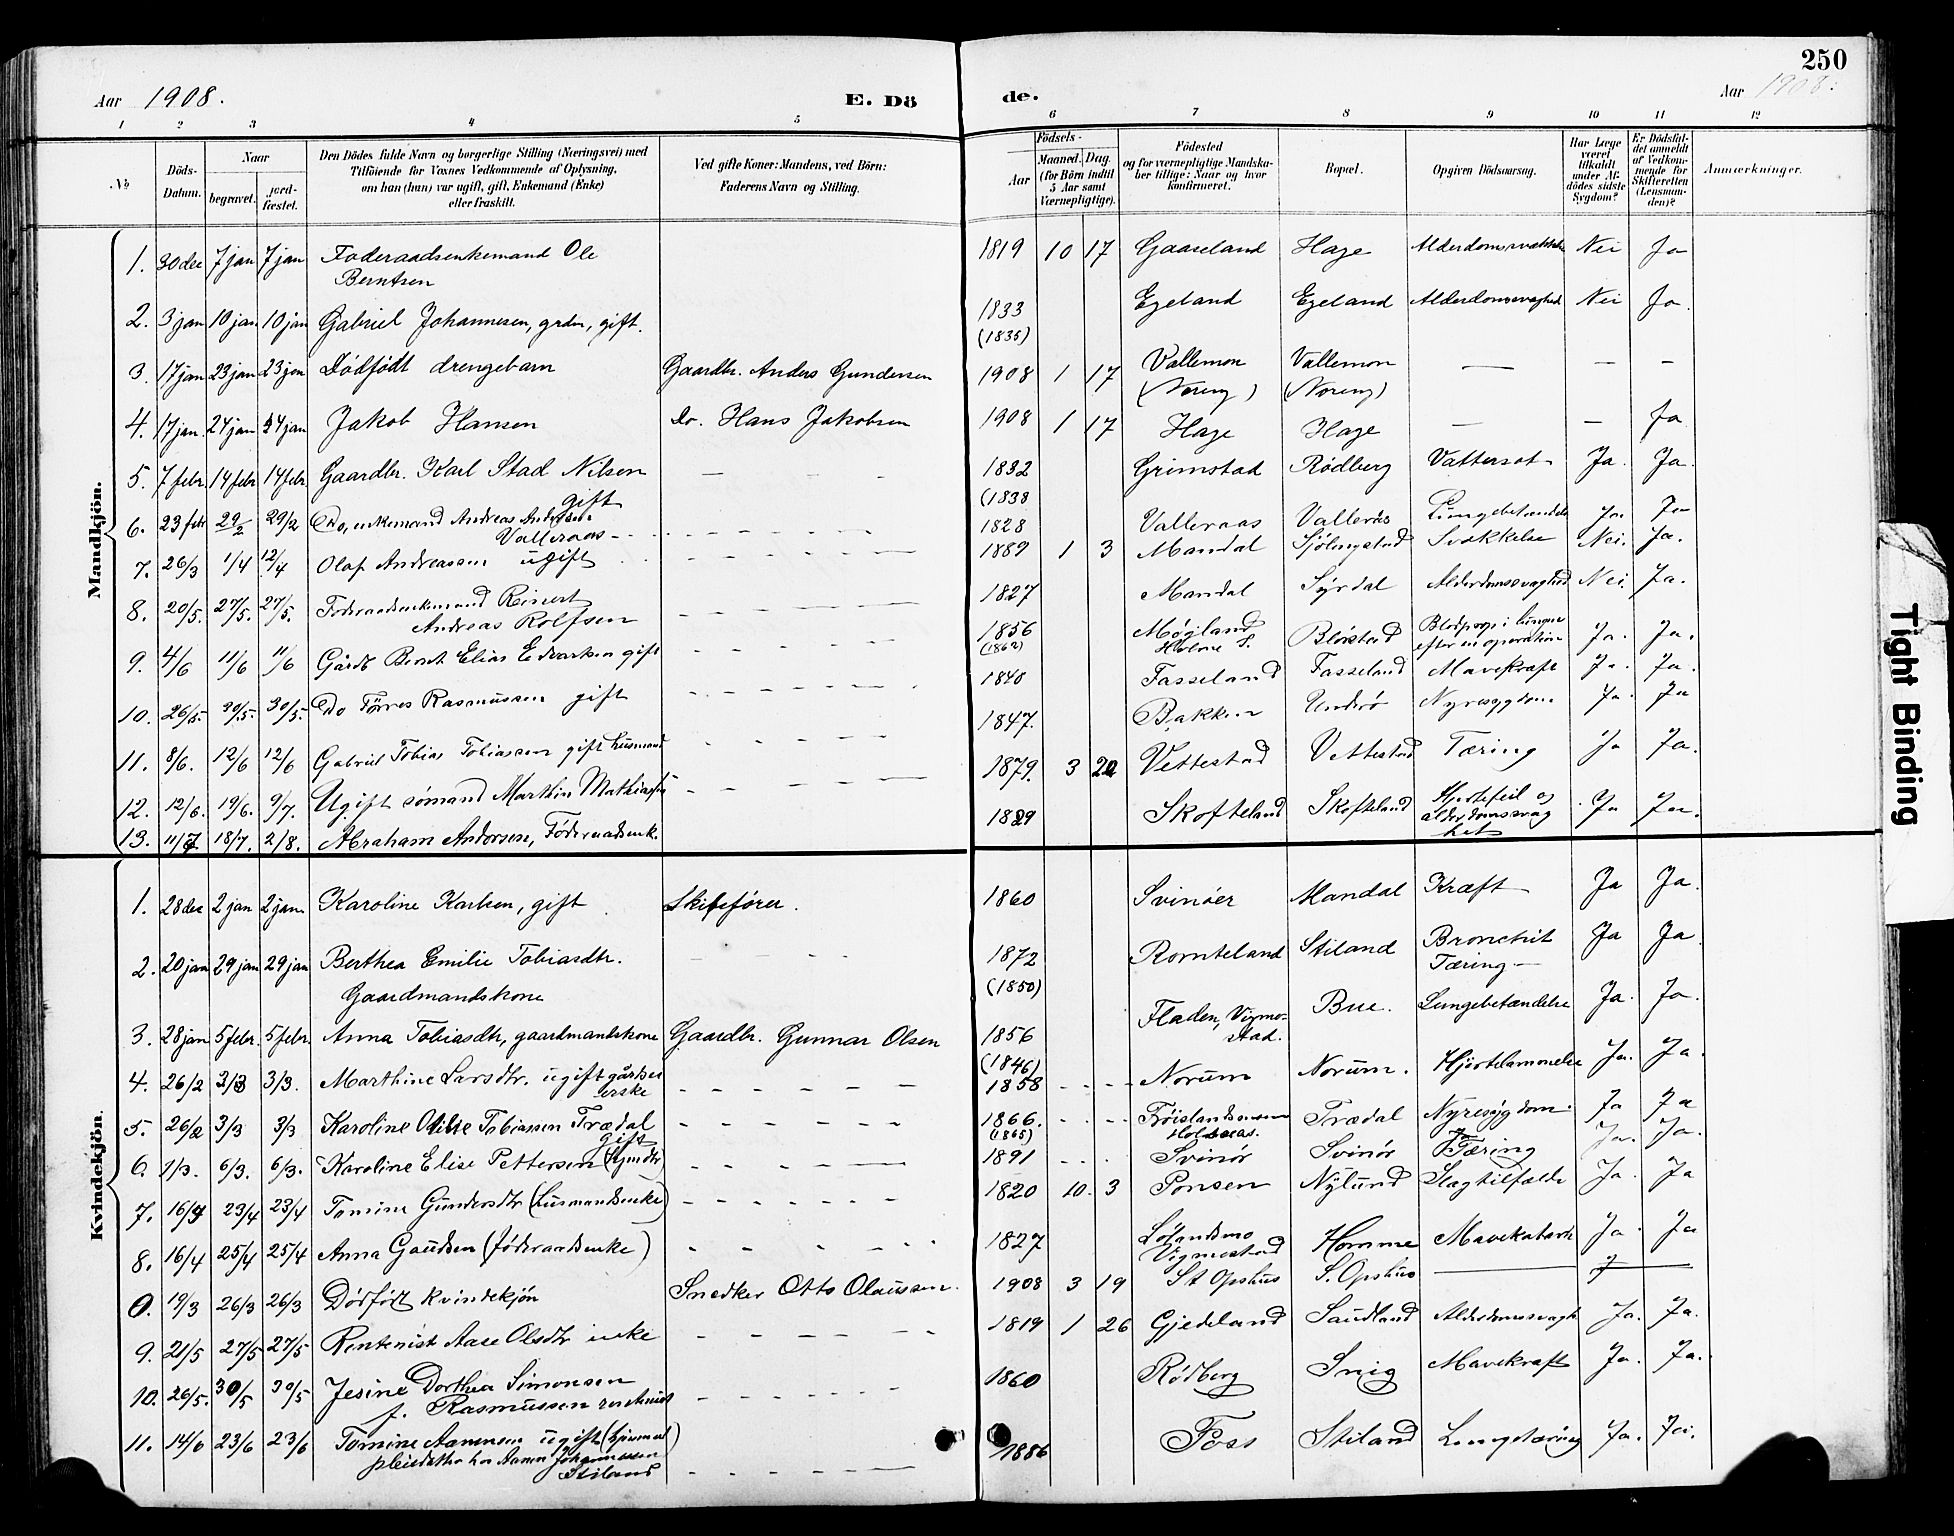 250
Aar 1908. E. Dö de. Aar 1908.
1 2 3 4 5 6 7 8 9 10 11 12
No. Döds-Datum. Naar begravet. jord-fæstet. Den Dödes fulde Navn og borgerlige Stilling (Næringsvei) med Tilföiende for Voxnes Vedkommende af Oplysning, om han (hun) var ugift, gift, Enkemand (Enke) eller fraskilt. Ved gifte Koner: Mandens, ved Börn: Faderens Navn og Stilling. Födsels- Aar Maaned. Dag. (for Börn indtil 5 Aar samt Værnepligtige). Födested og for værnepligtige Mandskaber tillige: Naar og hvor konfirmeret. Bopæl. Opgiven Dödsaarsag. Har Læge været tilkaldt under Afdödes sidste Sygdom? Er Dödsfaldet anmeldt af Vedkommende for Skifteretten (Lensmanden)? Anmærkninger.
Mandkjön.
1. 30 dec 7 jan 7 jan Foderaadsenkemand Ole Berntsen 1819 10 17 Gaaseland Hage Alderdomssvækkelse Nei Ja
2. 3 jan 10 jan 10 jan Gabriel Johannesen, grdm, gift. 1833 (1835) Egeland Egeland Alderdomssvaghed Nei Ja.
3. 17 jan 23 jan 23 jan Dödfödt drengebarn Gaardbr. Anders Gundersen 1908 1 17 Vallemon (Noreng) Vallemon (Noreng) — — —
4. 17 jan. 24 jan 24 jan Jakob Hansen Do. Hans Jakobsen 1908 1 17 Hage Hage — — Ja
5. 7 febr. 14 febr 14 febr. Gaardbr. Karl Stad Nilsen gift 1832 (1838 Grimstad Rödberg Vattersot Ja. Ja.
6. 23 febr 29/2 29/2 Do, enkemand Andreas Andersen Valleraas 1828 Valleraas Valleraas Lungebetændelse Ja. Ja
7. 26/3 1/4 12/4 Olaf Andreassen ugift 1889 1 3 Mandal Sjölingstad Svækkelse Nei. Ja.
8. 20/5. 27/5. 27/5. Foderaadsenkemand Reinert Andreas Rolfsen 1827 Mandal Syrdal Alderdomssvaghed Nei. Ja.
9. 4/6 11/6 11/6 Gårdb Berent Elias Edvartsen gift 1856 (1862) Møgland Holme S. Blörstad Blodprop i lungen efter en operation Ja. Ja.
10. 26/5. 30/5. 30/5. Do Tørres Rasmussen gift 1840 Fasseland Fasseland Mavekræft Ja. Ja.
11. 8/6. 12/6 12/6 Gabriel Tobias Tobiassen gift husmand 1847. Bakken Underö Nyresygdom Ja. Ja
12. 12/6. 19/6. 9/7. Ugift sømand Marthin Mathiassen 1879. 3 20 Vettestad Vettestad Tæring Ja Ja.
13. 11/7 18/7. 2/8. Abraham Andersen, Föderaadsenk. 1829 Skofteland Skofteland Hjertefeil og alderdomssvaghet Ja Ja.
Kvindekjön.
1. 28 dec 2 jan 2 jan. Karoline Karlsen, gift Skibsfører. 1860 Svinöer Mandal Kræft Ja Ja.
2. 20 jan 29 jan 29 jan Berthea Emilie Tobiasdtr. Gaardmandskone 1872 (1850) Romteland Stiland Bronchit Tæring Ja Ja.
3. 28 jan 5 febr. 5 febr. Anna Tobiasdtr, gaardmandskone Gaardbr. Gunnar Olsen 1856 (1846) Fladen, Vigmostad. Bue. Lungebetændelse Ja. Ja.
4. 26/2 3/3 3/3. Marthine Larsdtr. ugift gårdeierske 1858 Norum Norum. Hjertelammelse Ja. Ja.
5. 26/2 3/3 3/3 Karoline Olivie Tobiassen Trædal gift 1866. (1865) Fröislandsmoen Holmeas. Trædal Nyresygdom. Ja Ja
6. 1/3. 6/3. 6/3. Karoline Elise Pettersen 1891 Svinör Svinör Tæring Ja. Ja.
7. 16/4 23/4 23/4 Tomine Gundersdtr (husmandsenke) 1820 10. 3 Ponsen Nylund Slagtilfælde Ja. Ja
8. 16/4 25/4 25/4 Anna Gaudsen (föderaadsenke) 1827 Lölandsmo Vigmostad Homme Mavekatarrh Ja. Ja
0. 19/3 26/3 26/3 Dödfödt kvindekjön Snedker Otto Olaussen. 1908 3 19 St Opshus S. Opshus —
9. 21/5 27/5 27/5 Rentenist Aase Olsdtr enke 1819 1 26 Gjedeland Saudland Alderdomssvagh Ja. Ja.
10. 26/5. 30/5 30/5 Jesine Dorthea Simonsen f. Rasmussen rentenist 1860 Rödberg Snig Mavekræft Ja. Ja.
11. 14/6 23/6 23/6 Tomine Aanensen ugift pleiedatter hos Aanen Johannessen Stiland 1886 Foss Stiland Lungetæring Ja. Ja.
Tight Binding